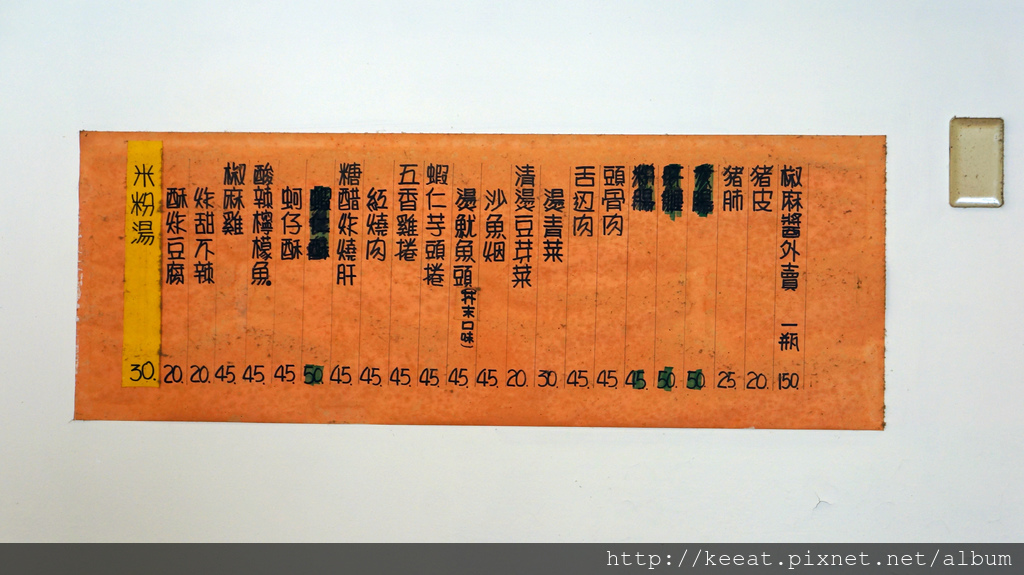 米粉湯 30.
酥炸豆腐 20.
炸甜不辣 20.
椒麻雞 45.
酸辣檸檬魚 45.
蚵仔酥 45.
50.
糖醋炸燒肝 45.
紅燒肉 45.
五香雞捲 45.
蝦仁芋頭捲 45.
湯魷魚頭(芥末口味) 45.
沙魚烟 45.
清湯豆芽菜 20.
湯青菜 30.
舌边肉 45.
頭骨肉 45.
45.
50.
50.
猪肺 25.
猪皮 20.
椒麻醬外賣 一瓶 150
http://keeat.pixnet.net/album